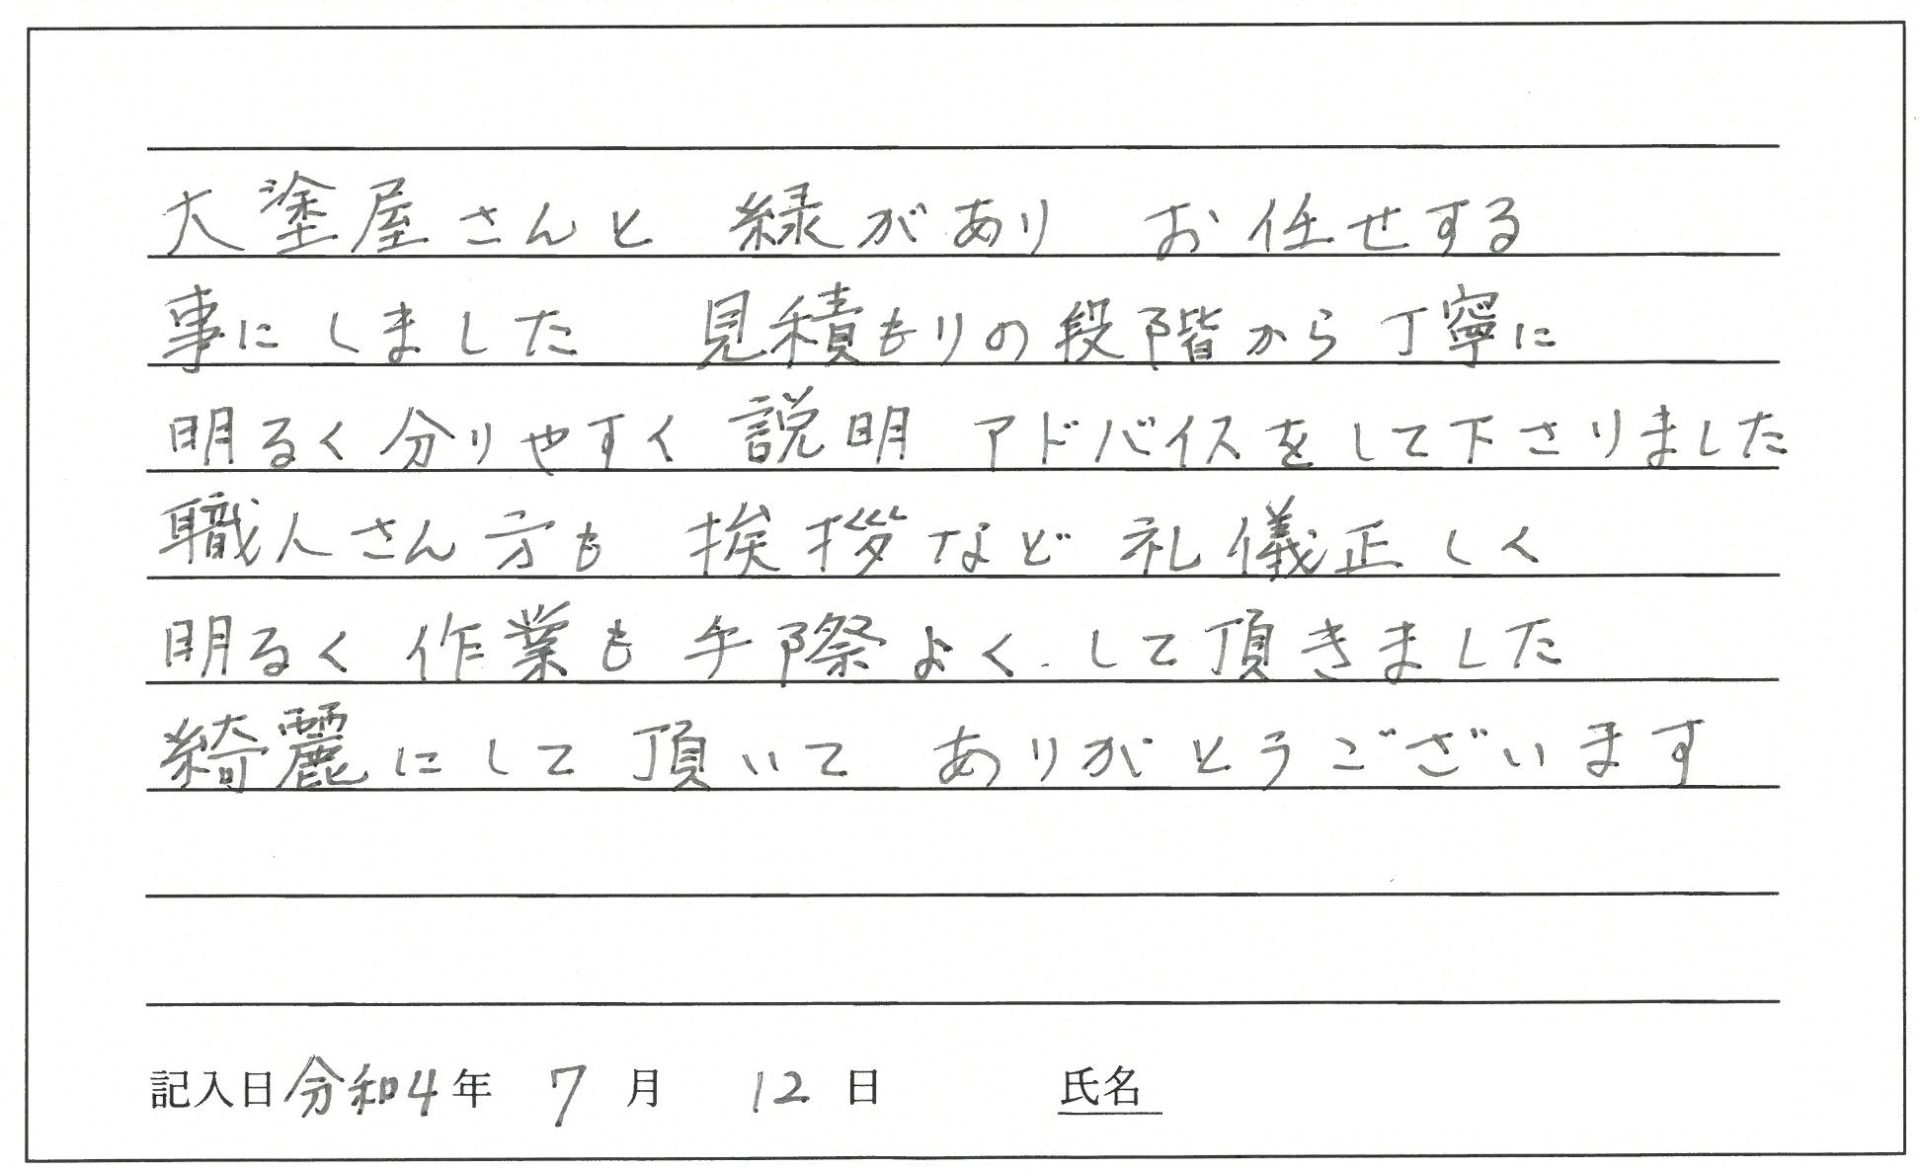 大塗屋さんと 縁があり お任せする
事にしました 見積もりの段階から丁寧に
明るく分りやすく説明 アドバイスをして下さりました
職人さん方も 挨拶など礼儀正しく
明るく 作業も 手際よくして頂きました
綺麗にして頂いて ありがとうございます
記入日 令和4年 7月 12日 氏名